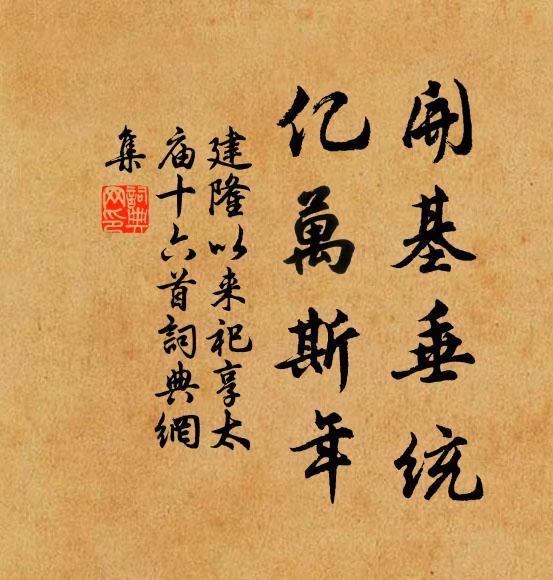 開基垂统
亿萬斯年
建隆以来祀享太
庙十六首詞典網
集
詞典網印